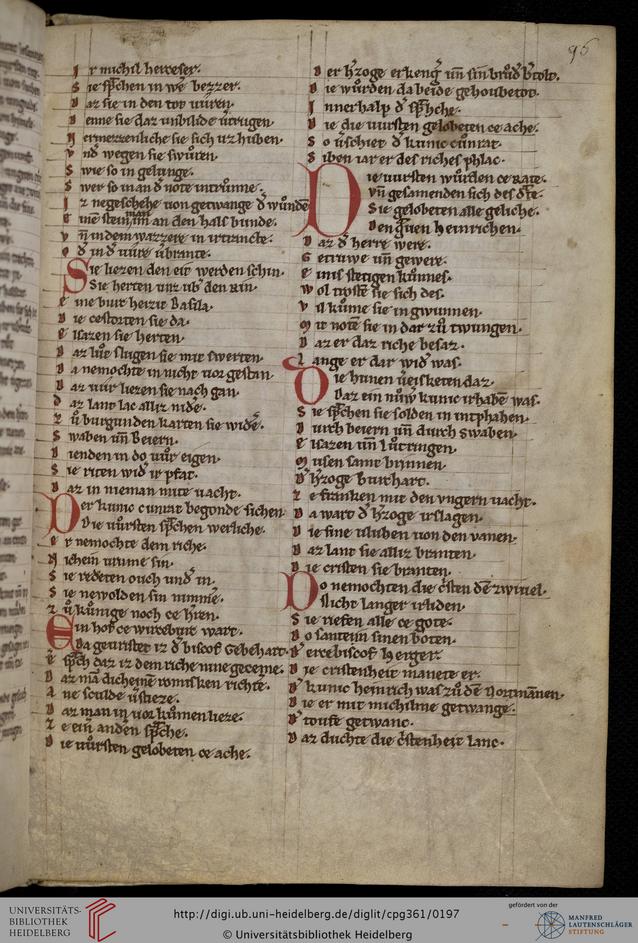 95
Ir michil herresez.
Sie sp̄chen in we᷑ bezzer.
Daz sie in den tot vůren.
Denne sie daz unbilde v᷑trůgen.
Vermezzenliche sie sich uz hůben.
Vnd wegen sie swůren.
Swie so in gelunge.
Swer so man d᷑ note intrůnne.
Iz negeschehe uon getwange d᷑ wůnde
man im an den hals bunde.
Vn̄ in dem wazzere in irtrancte.
Od᷑ in d᷑ uůre v᷑brante.
Sie liezen den eit werden schin.
Sie herten unz ůb᷑ den Rin.
Eine burc heizit Basila.
Die cestorten sie da.
Elsazen sie herten.
Daz lůt slugen sie mit swerten.
Da nemochte in nicht uor gestan
Daz uůr liezen sie nach gan.
Daz lant lac alliz nide.
Zů burgunden karten sie wide᷑.
Swaben un̄ Beiern.
Dienden in do uůr eigen.
Sie riten wid᷑ ir pfat.
Daz in nieman mite uacht.
Der kunic cunrat begonde sichen
Die uůrsten sp̄chen werliche.
Er nemochte dem riche.
Nichein urume sin.
Sie redeten ouch und᷑ in.
Sie newolden sin nimm̄e.
Zů kunige noch ce h᷑ren.
Ein hof ce wirceburc wart.
Da geuristet iz d᷑ biscof Gebehart.
Er sp̄ch daz iz dem riche nine geceme.
Daz mā dicheine romisken richte.
Ane sculde v᷑stieze.
Daz man in uor kumen lieze.
Ze ein᷑ anden sp̄che.
Die uůrsten gelobeten ce ache.
Der h᷑zoge erkeng᷑ un̄ sin brůd᷑ b᷑tolt.
Die wůrden da beide gehoubetot.
Innerhalp d᷑ sp᷑che.
Die die uursten gelobeten ce ache.
So v᷑schiet d᷑ kunic cůnrat.
Siben iar er des riches phlac.
Die uursten wůrden ce Rate.
Vn̄ gesamenden sich des d᷑te.
Sie gelobeten alle geliche.
Den g᷑uen heinrichen.
Daz d᷑ herre were.
Getruwe un̄ gewere.
Einis stetigen kunnes.
Wol trosten sie sich des.
Vil kume sie in gwunnen.
Mit noten sie in dar zů twungen.
Daz er daz riche besaz.
Lange er dar wid᷑ was.
Die hunen v᷑eisketen daz.
Daz ein nuw᷑ kunic irhabē was.
Sie sp᷑chen sie solden in intphahen.
Durch beiern un̄ durch swaben.
Elsazen un̄ Lutringen.
Musen samt brinnen.
D᷑ h᷑zoge burchart.
Ze franken mit den vngern uacht.
Da wart d᷑ h᷑zoge irslagen.
Die sine vluhen von den vanen.
Daz lant sie alliz branten.
Die cristen sie branten.
Do nemochten die c᷑sten dē zwiuel.
Nicht langer irliden.
Sie riefen alle ce gote.
Do santen sinen boten.
D᷑ ercebiscof herger.
Die cristenheit manete er.
D᷑ kunic heinrich was zů dē Nortmānen.
Die er mit michilme getwange.
D᷑ toufe getwanc.
Daz duchte die c᷑stenheit lanc.
UNIVERSITÄTS-
BIBLIOTHEK
HEIDELBERG
http://digi.ub.uni-heidelberg.de/diglit/cpg361/0197
© Universitätsbibliothek Heidelberg
gefördert von der
MANFRED
LAUTENSCHLÄGER
STIFTUNG